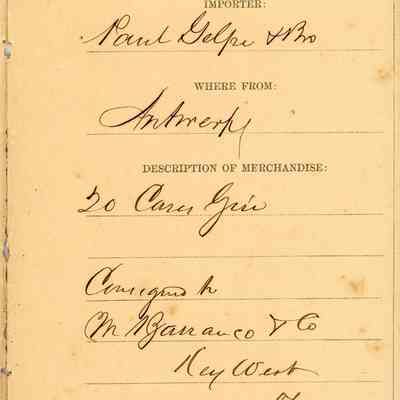 IMPORTER:
Paul Gelpi & Bro
WHERE FROM:
Antwerp
DESCRIPTION OF MERCHANDISE:
20 Cases Gin
Consigned to
M Barranco & Co
Key West